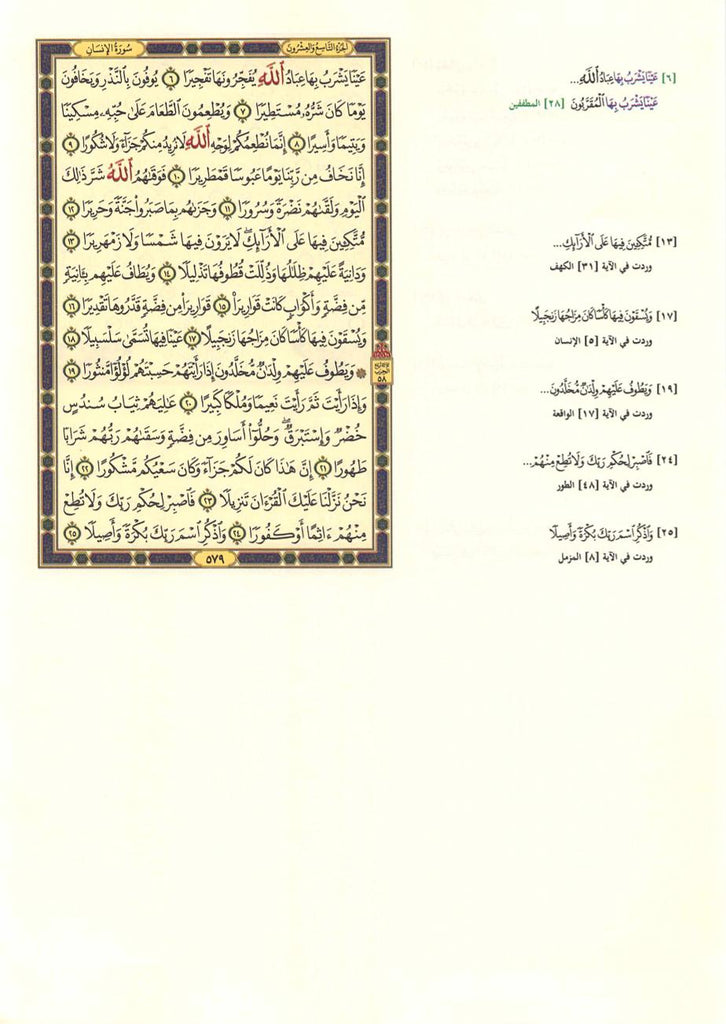 سُورَةُ الإِنسَانِ
الجُزْءُ التَّاسِعُ وَالعِشْرُونَ
عَيْنًا يَشْرَبُ بِهَا عِبَادُ ٱللَّهِ يُفَجِّرُونَهَا تَفْجِيرًا ٦ يُوفُونَ بِٱلنَّذْرِ وَيَخَافُونَ
يَوْمًا كَانَ شَرُّهُۥ مُسْتَطِيرًا ٧ وَيُطْعِمُونَ ٱلطَّعَامَ عَلَىٰ حُبِّهِۦ مِسْكِينًا
وَيَتِيمًا وَأَسِيرًا ٨ إِنَّمَا نُطْعِمُكُمْ لِوَجْهِ ٱللَّهِ لَا نُرِيدُ مِنكُمْ جَزَآءً وَلَا شُكُورًا ٩
إِنَّا نَخَافُ مِن رَّبِّنَا يَوْمًا عَبُوسًا قَمْطَرِيرًا ١٠ فَوَقَىٰهُمُ ٱللَّهُ شَرَّ ذَٰلِكَ
ٱلْيَوْمِ وَلَقَّىٰهُمْ نَضْرَةً وَسُرُورًا ١١ وَجَزَىٰهُم بِمَا صَبَرُوا۟ جَنَّةً وَحَرِيرًا ١٢
مُّتَّكِـِٔينَ فِيهَا عَلَى ٱلْأَرَآئِكِ ۖ لَا يَرَوْنَ فِيهَا شَمْسًا وَلَا زَمْهَرِيرًا ١٣
وَدَانِيَةً عَلَيْهِمْ ظِلَٰلُهَا وَذُلِّلَتْ قُطُوفُهَا تَذْلِيلًا ١٤ وَيُطَافُ عَلَيْهِم بِـَٔانِيَةٍ
مِّن فِضَّةٍ وَأَكْوَابٍ كَانَتْ قَوَارِيرَا۠ ١٥ قَوَارِيرَا۟ مِن فِضَّةٍ قَدَّرُوهَا تَقْدِيرًا ١٦
وَيُسْقَوْنَ فِيهَا كَأْسًا كَانَ مِزَاجُهَا زَنجَبِيلًا ١٧ عَيْنًا فِيهَا تُسَمَّىٰ سَلْسَبِيلًا ١٨
۞ وَيَطُوفُ عَلَيْهِمْ وِلْدَٰنٌ مُّخَلَّدُونَ إِذَا رَأَيْتَهُمْ حَسِبْتَهُمْ لُؤْلُؤًا مَّنثُورًا ١٩
وَإِذَا رَأَيْتَ ثَمَّ رَأَيْتَ نَعِيمًا وَمُلْكًا كَبِيرًا ٢٠ عَٰلِيَهُمْ ثِيَابُ سُندُسٍ
خُضْرٌ وَإِسْتَبْرَقٌ ۖ وَحُلُّوٓا۟ أَسَاوِرَ مِن فِضَّةٍ وَسَقَىٰهُمْ رَبُّهُمْ شَرَابًا
طَهُورًا ٢١ إِنَّ هَٰذَا كَانَ لَكُمْ جَزَآءً وَكَانَ سَعْيُكُم مَّشْكُورًا ٢٢ إِنَّا
نَحْنُ نَزَّلْنَا عَلَيْكَ ٱلْقُرْءَانَ تَنزِيلًا ٢٣ فَٱصْبِرْ لِحُكْمِ رَبِّكَ وَلَا تُطِعْ
مِنْهُمْ ءَاثِمًا أَوْ كَفُورًا ٢٤ وَٱذْكُرِ ٱسْمَ رَبِّكَ بُكْرَةً وَأَصِيلًا ٢٥
٥٧٩
٥٨
[٦] عَيْنًا يَشْرَبُ بِهَا عِبَادُ ٱللَّهِ...
عَيْنًا يَشْرَبُ بِهَا ٱلْمُقَرَّبُونَ [٢٨] المطففين
[١٣] مُّتَّكِـِٔينَ فِيهَا عَلَى ٱلْأَرَآئِكِ...
وردت في الآية [٣١] الكهف
[١٧] وَيُسْقَوْنَ فِيهَا كَأْسًا كَانَ مِزَاجُهَا زَنجَبِيلًا
وردت في الآية [٥] الإنسان
[١٩] وَيَطُوفُ عَلَيْهِمْ وِلْدَٰنٌ مُّخَلَّدُونَ...
وردت في الآية [١٧] الواقعة
[٢٤] فَٱصْبِرْ لِحُكْمِ رَبِّكَ وَلَا تُطِعْ مِنْهُمْ...
وردت في الآية [٤٨] الطور
[٢٥] وَٱذْكُرِ ٱسْمَ رَبِّكَ بُكْرَةً وَأَصِيلًا
وردت في الآية [٨] المزمل